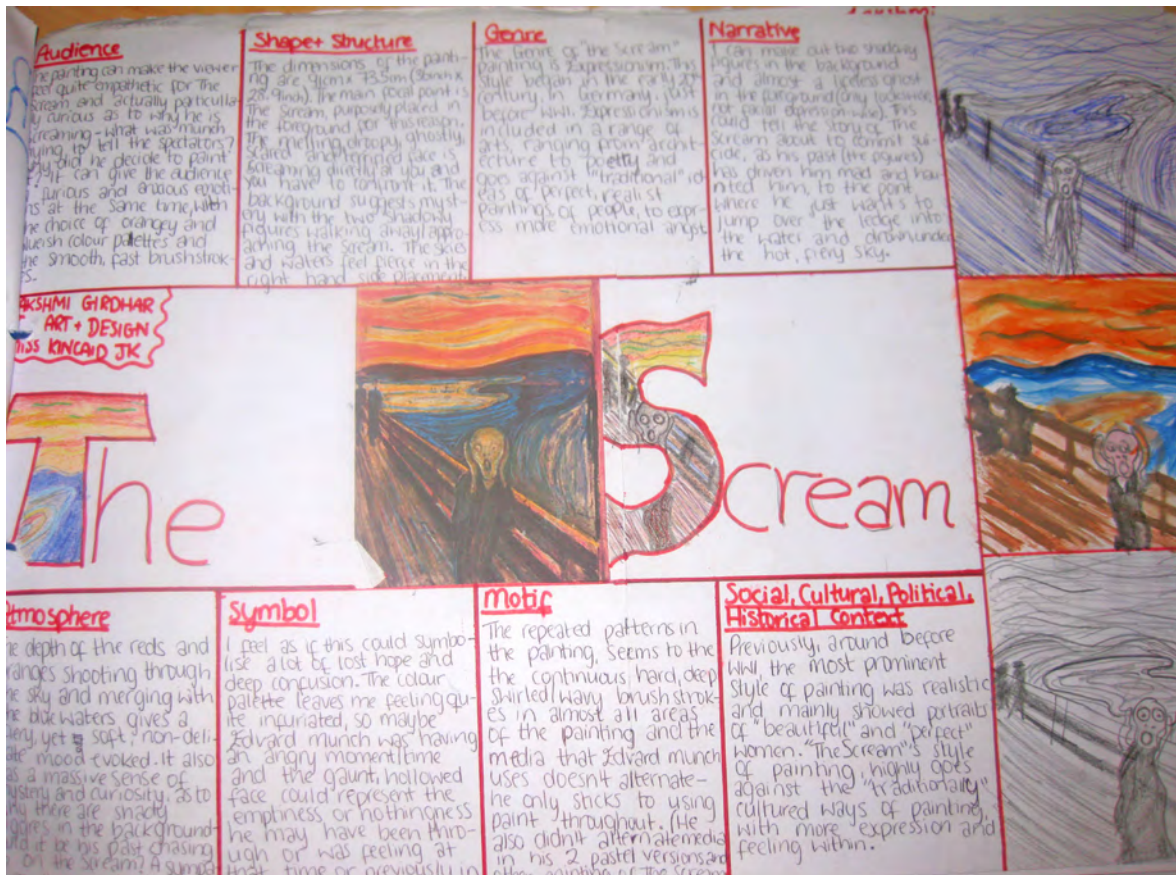 Lakshmi
Audience
he painting can make the viewer
feel quite empathetic for The
Scream and actually particula-
ly curious as to why he is
screaming - what was munch
ying to tell the spectators?
hy did he decide to paint
? It can give the audience
furious and anxious emoti-
ns at the same time, with
he choice of orangey and
ueish colour palettes and
he smooth, fast brushstrok-
es.
Shape + Structure
The dimensions of the painti-
ng are 91cm x 73.5cm (36inch x
28.9inch). The main focal point is
The Scream, purposely placed in
the foreground for this reason.
The melting, droopy, ghostly,
scared and horrified face is
screaming directly at you and
you have to confront it. The
background suggests myst-
ery with the two shadowy
figures walking away/appro-
aching the scream. The skies
and waters feel fierce in the
right hand side placement
Genre
The Genre of "The Scream"
painting is Expressionism. This
style began in the early 20th
century, in Germany, just
before WWI. Expressionism is
included in a range of
arts, ranging from archit-
ecture to poetty and
goes against "traditional" id-
eas of perfect, realist
paintings of people, to expr-
ess more emotional angst
Narrative
I can make out two shadowy
figures in the background
and almost a lifeless ghost
in the foreground (only lookswise,
not facial expression-wise). This
could tell the story of The
Scream about to commit sui-
cide, as his past (the figures)
has driven him mad and hau-
nted him, to the point
where he just wants to
jump over the ledge into
the water and drown under
the hot, fiery sky.
AKSHMI GIRDHAR
ART + DESIGN
MISS KINCAID JK
The Scream
Atmosphere
he depth of the reds and
ranges shooting through
he sky and merging with
he blue waters gives a
ery, yet soft, non-deli-
ate mood evoked. It also
as a massive sense of
ystery and curiosity, as to
hy there are shady
igures in the background-
uld it be his past chasing
on the scream? A sympa
Symbol
I feel as if this could symbo-
lise a lot of lost hope and
deep confusion. The colour
palette leaves me feeling qu-
ite infuriated, so maybe
Edvard munch was having
an angry moment/time
and the gaunt, hollowed
face could represent the
emptiness or nothingness
he may have been thro-
ugh or was feeling at
that time or previously in
Motif
The repeated patterns in
the painting, seems to the
the continuous hard, deep
swirled, wavy brushstrok-
es in almost all areas
of the painting and the
media that Edvard munch
uses doesn't alternate-
he only sticks to using
paint throughout. (He
also didn't alternate media
in his 2 pastel versions and
other painting of The Scream
Social, Cultural, Political,
Historical Context
Previously, around before
WWI, the most prominent
style of painting was realistic
and mainly showed portraits
of "beautiful" and "perfect"
women. "The Scream"'s style
of painting, highly goes
against the "traditionally"
cultured ways of painting,
with more expression and
feeling within.